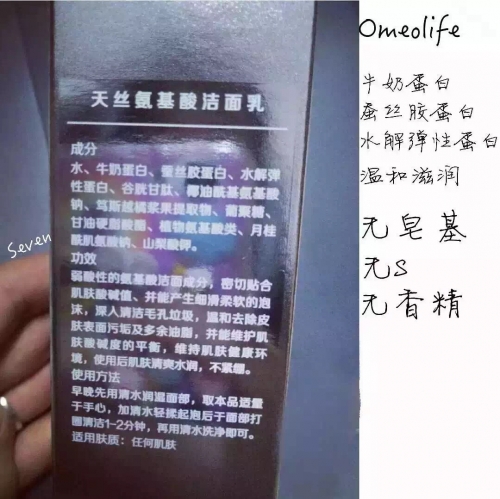 天丝氨基酸洁面乳
成分
水、牛奶蛋白、蚕丝胶蛋白、水解弹
性蛋白、谷胱甘肽、椰油酰基氨基酸
钠、笃斯越橘浆果提取物、葡聚糖、
甘油硬脂酸酯、植物氨基酸类、月桂
酰肌氨酸钠、山梨酸钾。
功效
弱酸性的氨基酸洁面成分，密切贴合
肌肤酸碱值、并能产生细滑柔软的泡
沫，深入清洁毛孔垃圾，温和去除皮
肤表面污垢及多余油脂，并能维护肌
肤酸碱度的平衡，维持肌肤健康环
境，使用后肌肤清爽水润，不紧绷。
使用方法
早晚先用清水润湿面部，取本品适量
于手心，加清水轻揉起泡后于面部打
圈清洁1-2分钟，再用清水洗净即可。
适用肤质：任何肌肤
Seven
Omeolife
牛奶蛋白
蚕丝胶蛋白
水解弹性蛋白
温和滋润
无皂基
无S
无香精